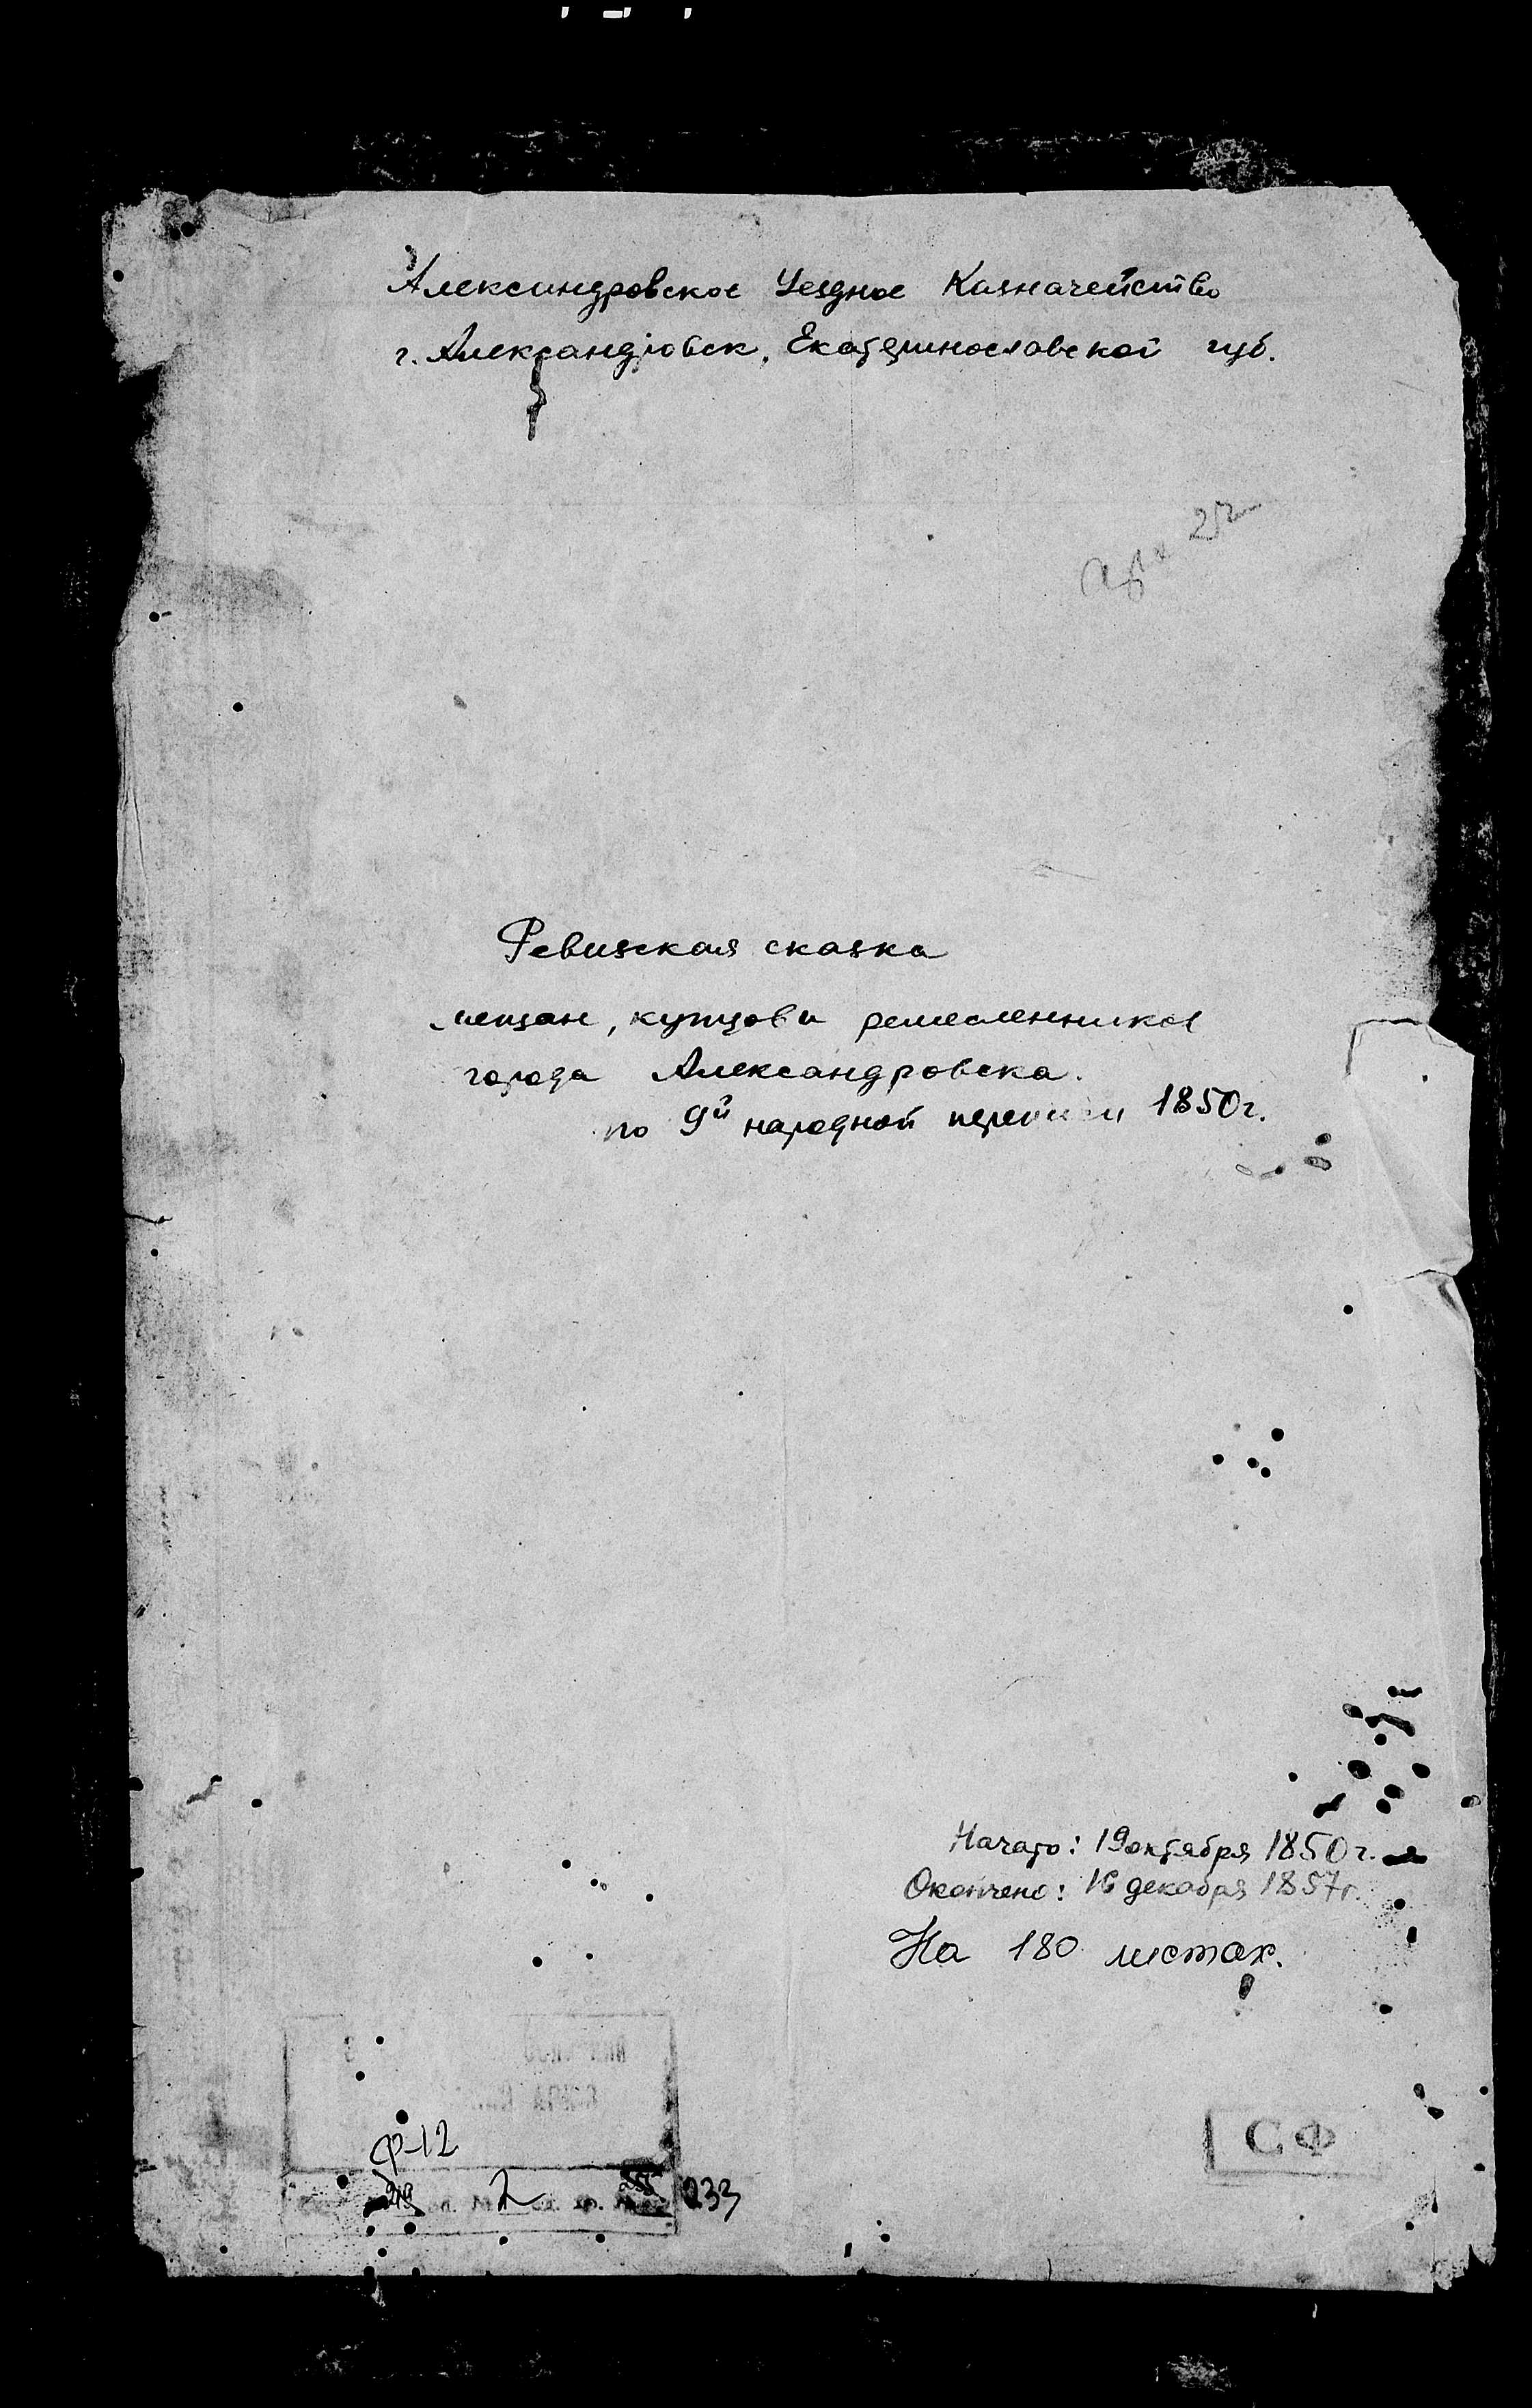 Александровское Уездное Казначейство
г. Александровск, Екатеринославской губ.
Ревизская сказка
мещан, купцов и ремесленников
города Александровска.
по 9й народной переписи 1850г.
Начато: 19 октября 1850г.
Окончено: 16 декабря 1857г.
На 180 листах.
Ф-12
2 233
СФ